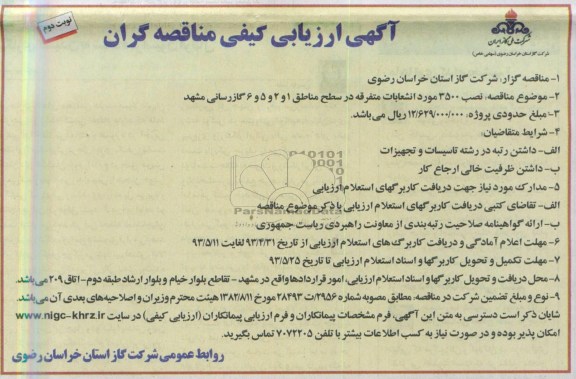 نوبت دوم
آگهی ارزیابی کیفی مناقصه گران
شرکت ملی گاز ایران
شرکت گاز استان خراسان رضوی (سهامی خاص)
۱- مناقصه گزار: شرکت گاز استان خراسان رضوی
۲- موضوع مناقصه: نصب ۳۵۰۰ مورد انشعابات متفرقه در سطح مناطق ۱ و ۲ و ۵ و ۶ گازرسانی مشهد
۳- مبلغ حدودی پروژه: ۱۲/۶۲۹/۰۰۰/۰۰۰ ریال می باشد.
۴- شرایط متقاضیان:
الف- داشتن رتبه در رشته تاسیسات و تجهیزات
ب- داشتن ظرفیت خالی ارجاع کار
۵- مدارک مورد نیاز جهت دریافت کاربرگهای استعلام ارزیابی
الف- تقاضای کتبی دریافت کاربرگهای استعلام ارزیابی با ذکر موضوع مناقصه
ب- ارائه گواهینامه صلاحیت رتبه بندی از معاونت راهبردی ریاست جمهوری
۶- مهلت اعلام آمادگی و دریافت کاربرگ های استعلام ارزیابی از تاریخ ۹۳/۴/۳۱ لغایت ۹۳/۵/۱۱
۷- مهلت تکمیل و تحویل کاربرگها و اسناد استعلام ارزیابی تا تاریخ ۹۳/۵/۲۵
۸- محل دریافت و تحویل کاربرگها و اسناد استعلام ارزیابی، امور قراردادها واقع در مشهد - تقاطع بلوار خیام و بلوار ارشاد طبقه دوم - اتاق ۲۰۹ می باشد.
۹- نوع و مبلغ تضمین شرکت در مناقصه، مطابق مصوبه شماره ۲۹۵۶/ت ۲۸۴۹۳ مورخ ۱۳۸۲/۸/۱۱ هیئت محترم وزیران و اصلاحیه های بعدی آن می باشد.
شایان ذکر است دسترسی به متن این آگهی، فرم مشخصات پیمانکاران و فرم ارزیابی پیمانکاران (ارزیابی کیفی) در سایت www.nigc-khrz.ir
امکان پذیر بوده و در صورت نیاز به کسب اطلاعات بیشتر با تلفن ۷۰۷۲۲۰۵ تماس بگیرید.
روابط عمومی شرکت گاز استان خراسان رضوی
ParsNamadData